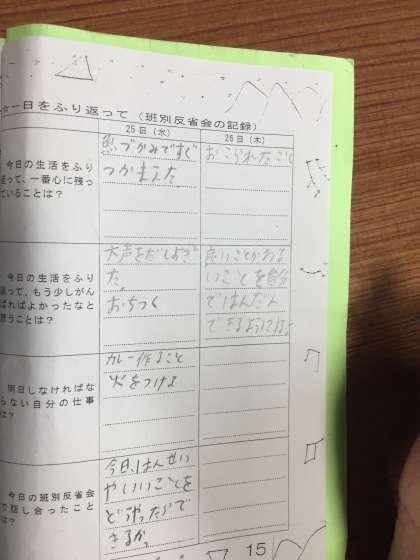 ☆一日をふり返って（班別反省会の記録）
25日（水） 26日（木）
今日の生活をふり
返って、一番心に残っ
ていることは？
魚づかみですぐ
つかまえた
おこられたこと
今日の生活をふり
返って、もう少しがん
ばればよかったなと
思うことは？
大声をだしすぎ
た。
おちつく
良いことかわる
いことを自分
ではんだん
できるようになる。
明日しなければな
らない自分の仕事
は？
カレー作ること
火をつける
今日の班別反省会
で話し合ったこと
は？
今日、はんせい
やいいことを
どうやったらで
きるか。
15